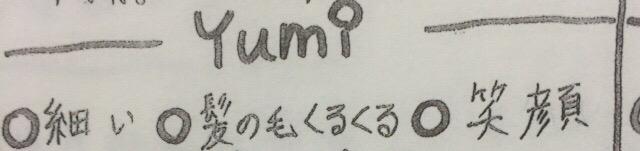 Yumi
○細い ○髪の毛くるくる ○笑顔